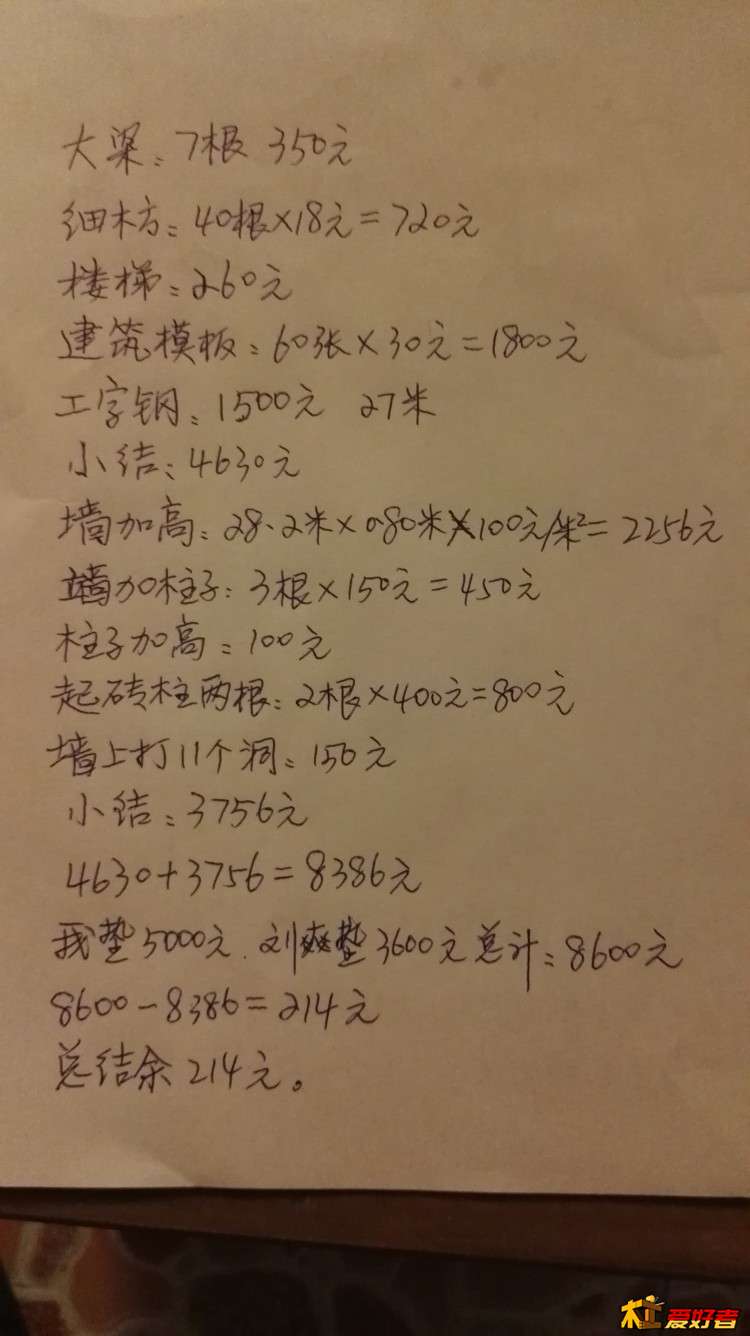 大梁：7根 350元
细木方：40根×18元=720元
楼梯：260元
建筑模板：60张×30元=1800元
工字钢：1500元 27米
小结：4630元
墙加高：28.2米×0.80米×100元/米²=2256元
墙加柱子：3根×150元=450元
柱子加高：100元
起砖柱两根：2根×400元=800元
墙上打11个洞：150元
小结：3756元
4630+3756=8386元
我垫5000元.刘爽垫3600元总计：8600元
8600-8386=214元
总结余214元。
爱好者